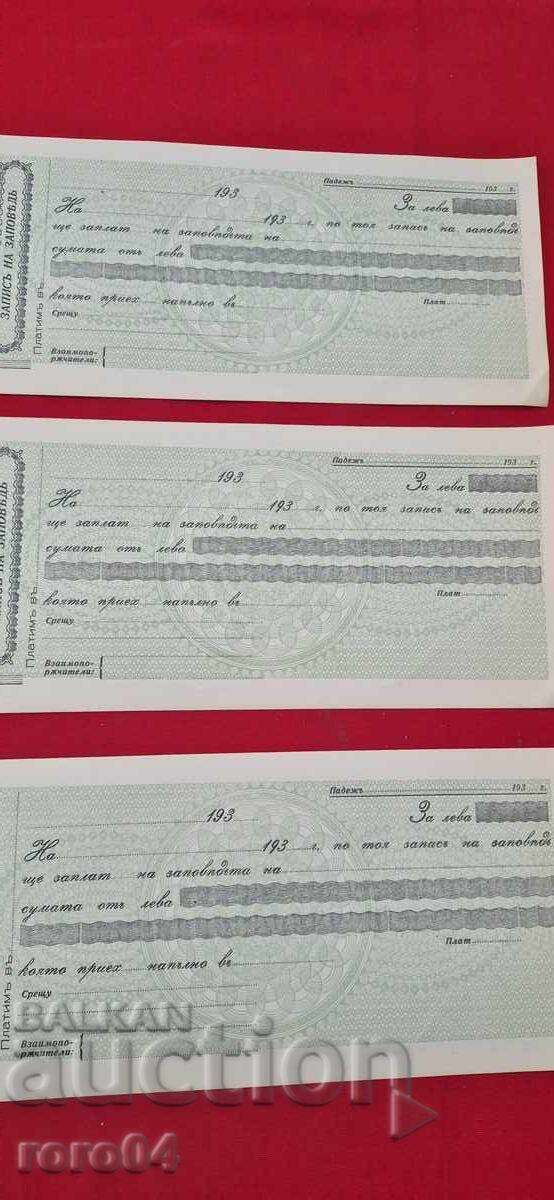 ЗАПИСЪ НА ЗАПОВѢДЬ
Платимъ въ
193
Падежъ 193 г.
За лева
На 193 г. по тоя записъ на заповѣдь
ще заплат на заповѣдьта на
сумата отъ лева
която приех напълно въ
Плат
Срещу
Взаимопо-
ржчители:
НА ЗАПОВѢДЬ
Платимъ въ
193
Падежъ 193 г.
За лева
На 193 г. по тоя записъ на заповѣдь
ще заплат на заповѣдьта на
сумата отъ лева
която приех напълно въ
Плат
Срещу
Взаимопо-
ржчители:
Платимъ въ
193
Падежъ 193 г.
За лева
На 193 г. по тоя записъ на заповѣдь
ще заплат на заповѣдьта на
сумата отъ лева
Плат
която приех напълно въ
Срещу
Взаимопо-
ржчители:
BALKAN
auction
roro04